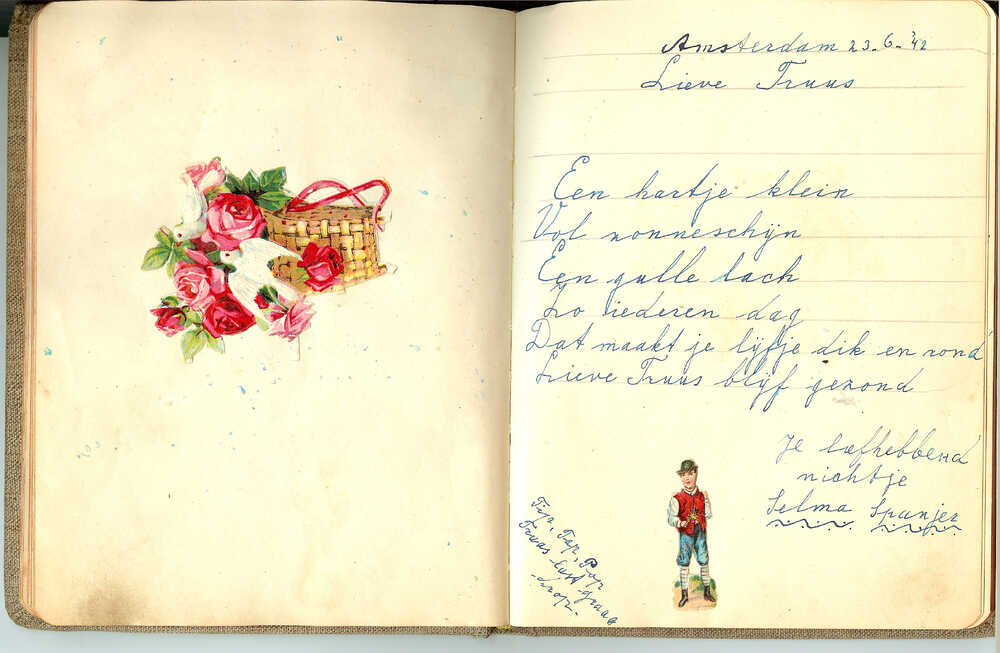 Amsterdam 23-6-'42
Lieve Truus
Een hartje klein
Vol zonneschijn
Een gulle lach
Zo iederen dag
Dat maakt je lijfje dik en rond
Lieve Truus blijf gezond
Je liefhebbend
nichtje
Selma Spanjer
Tip, Tap, Pop
Truus lust graag
drop.